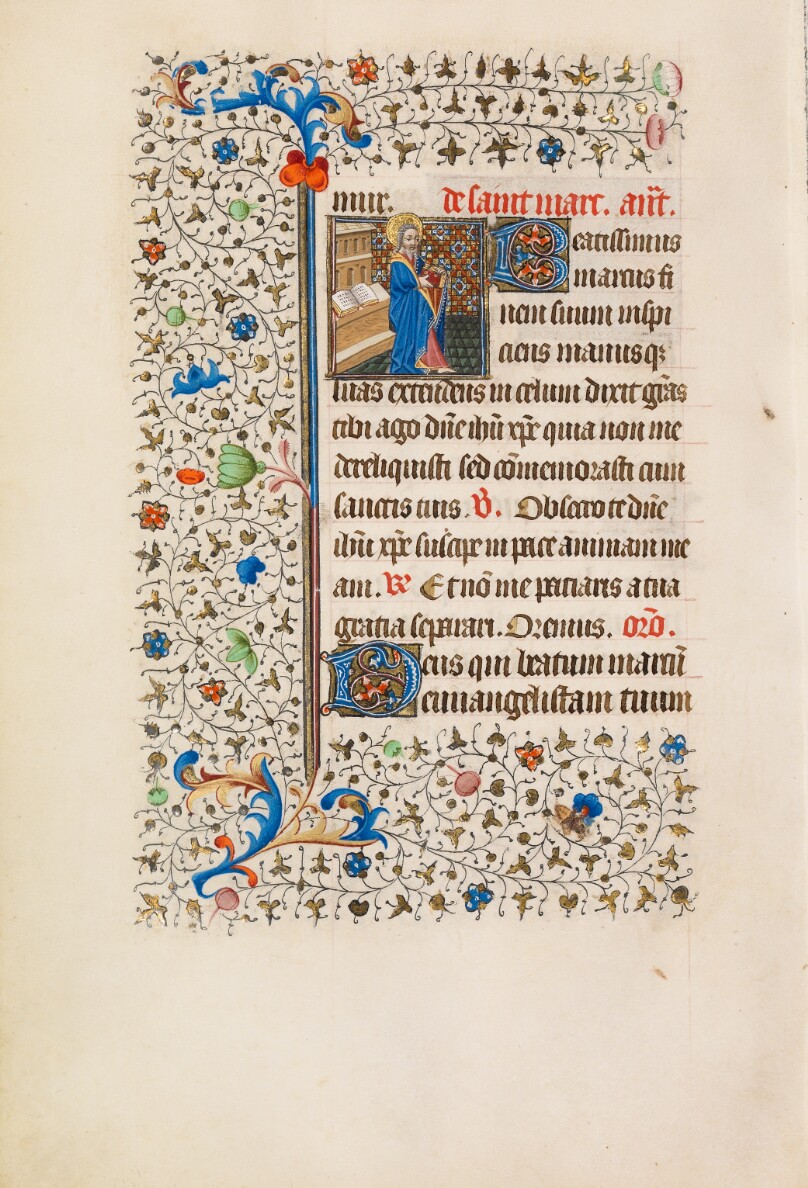 mur. de saint marc. añt.
Beatissimus
marcus fi
nem suum inspi
ciens manusqꝫ
suas extendens in celum dixit grãs
tibi ago dñe ihũ xp̃e quia non me
dereliquisti sed cõmemorasti cum
sanctis tuis. ℣. Obsecro te dñe
ihũ xp̃e suscipe in pace animam me
am. ℟ Et nõ me paciaris a tua
gratia separari. Oremus. orõ.
Deus qui beatum marcũ
euuangelistam tuum